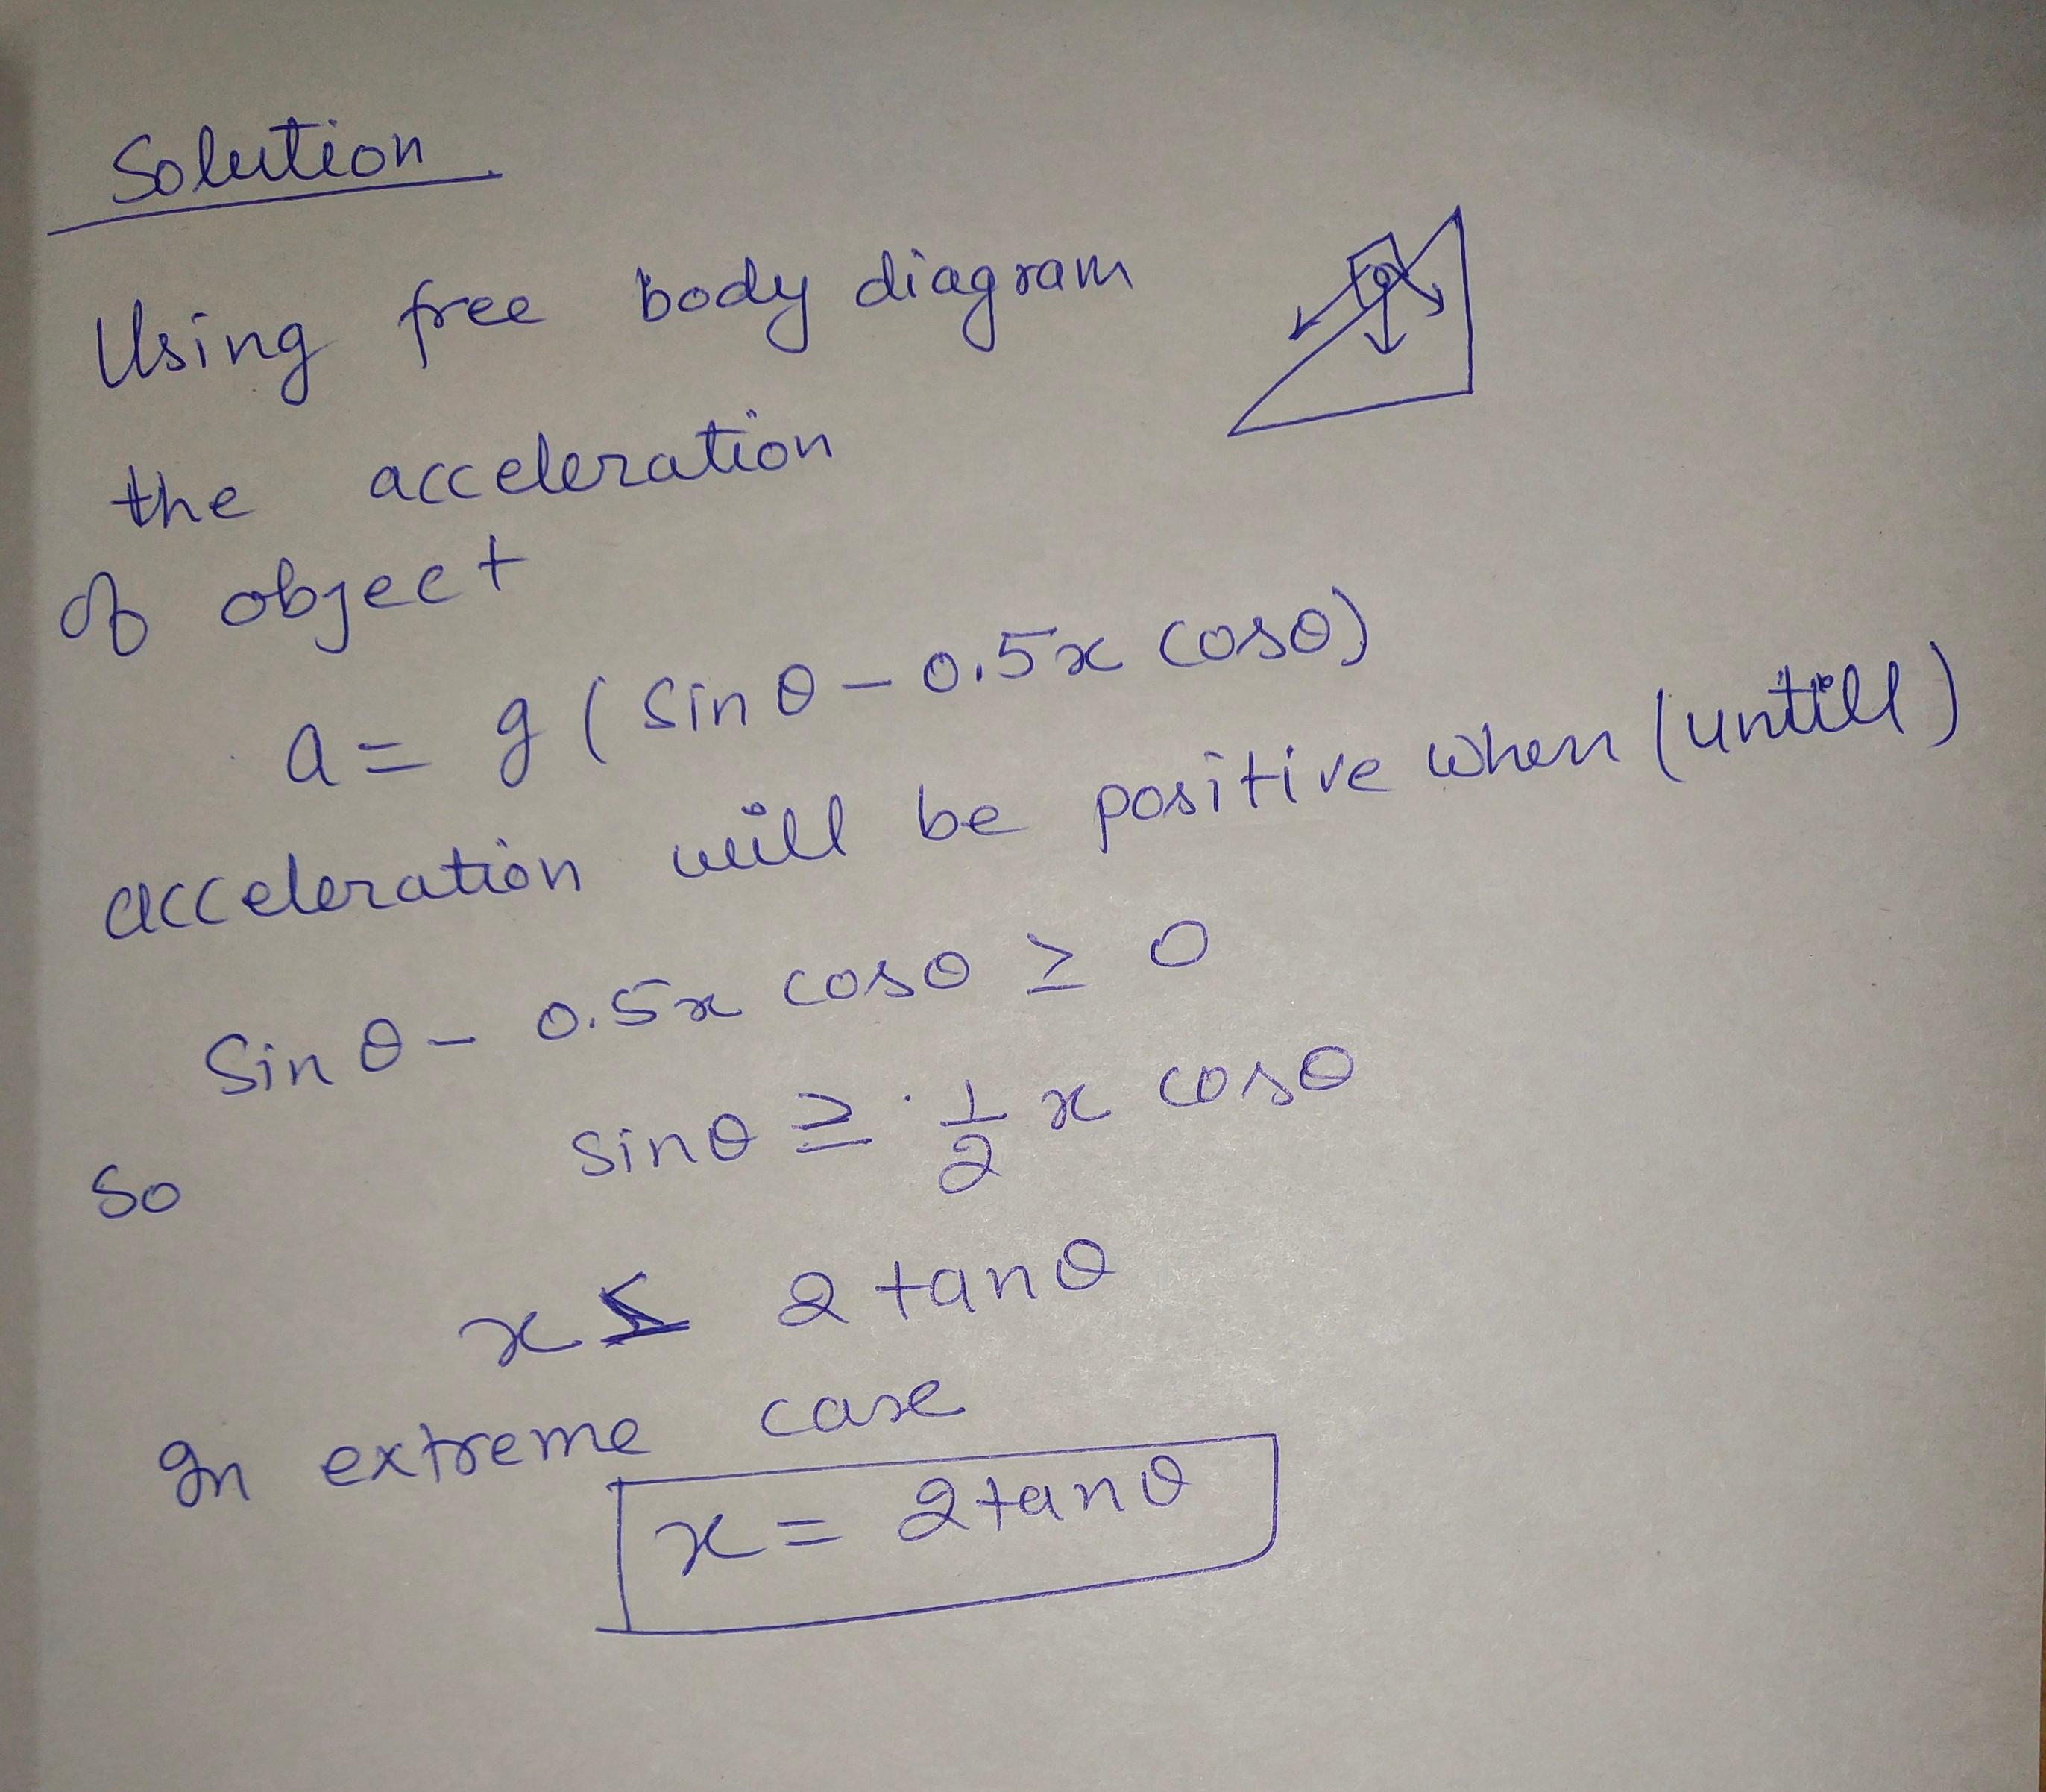 Solution
Using free body diagram
the acceleration
of object
a = g ( Sin θ - 0.5x cosθ)
acceleration will be positive when (untill)
Sin θ - 0.5x cosθ ≥ 0
So sinθ ≥ 1/2 x cosθ
x ≤ 2 tanθ
In extreme case
x = 2tanθ